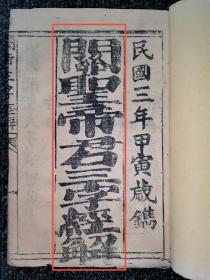 民國三年甲寅歲鐫
關聖帝君三字經解